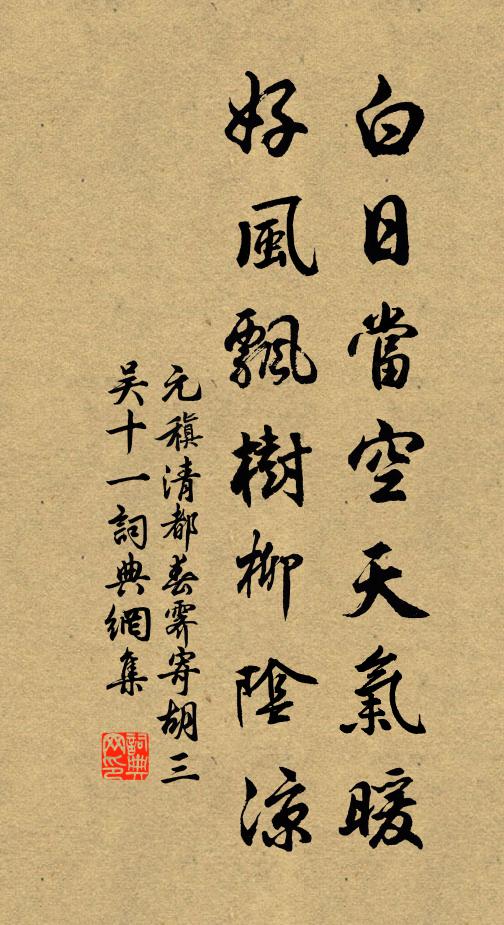 白日當空天氣暖
好風飄樹柳陰涼
元稹清都春霽寄胡三
吴十一詞典網集
詞典网印